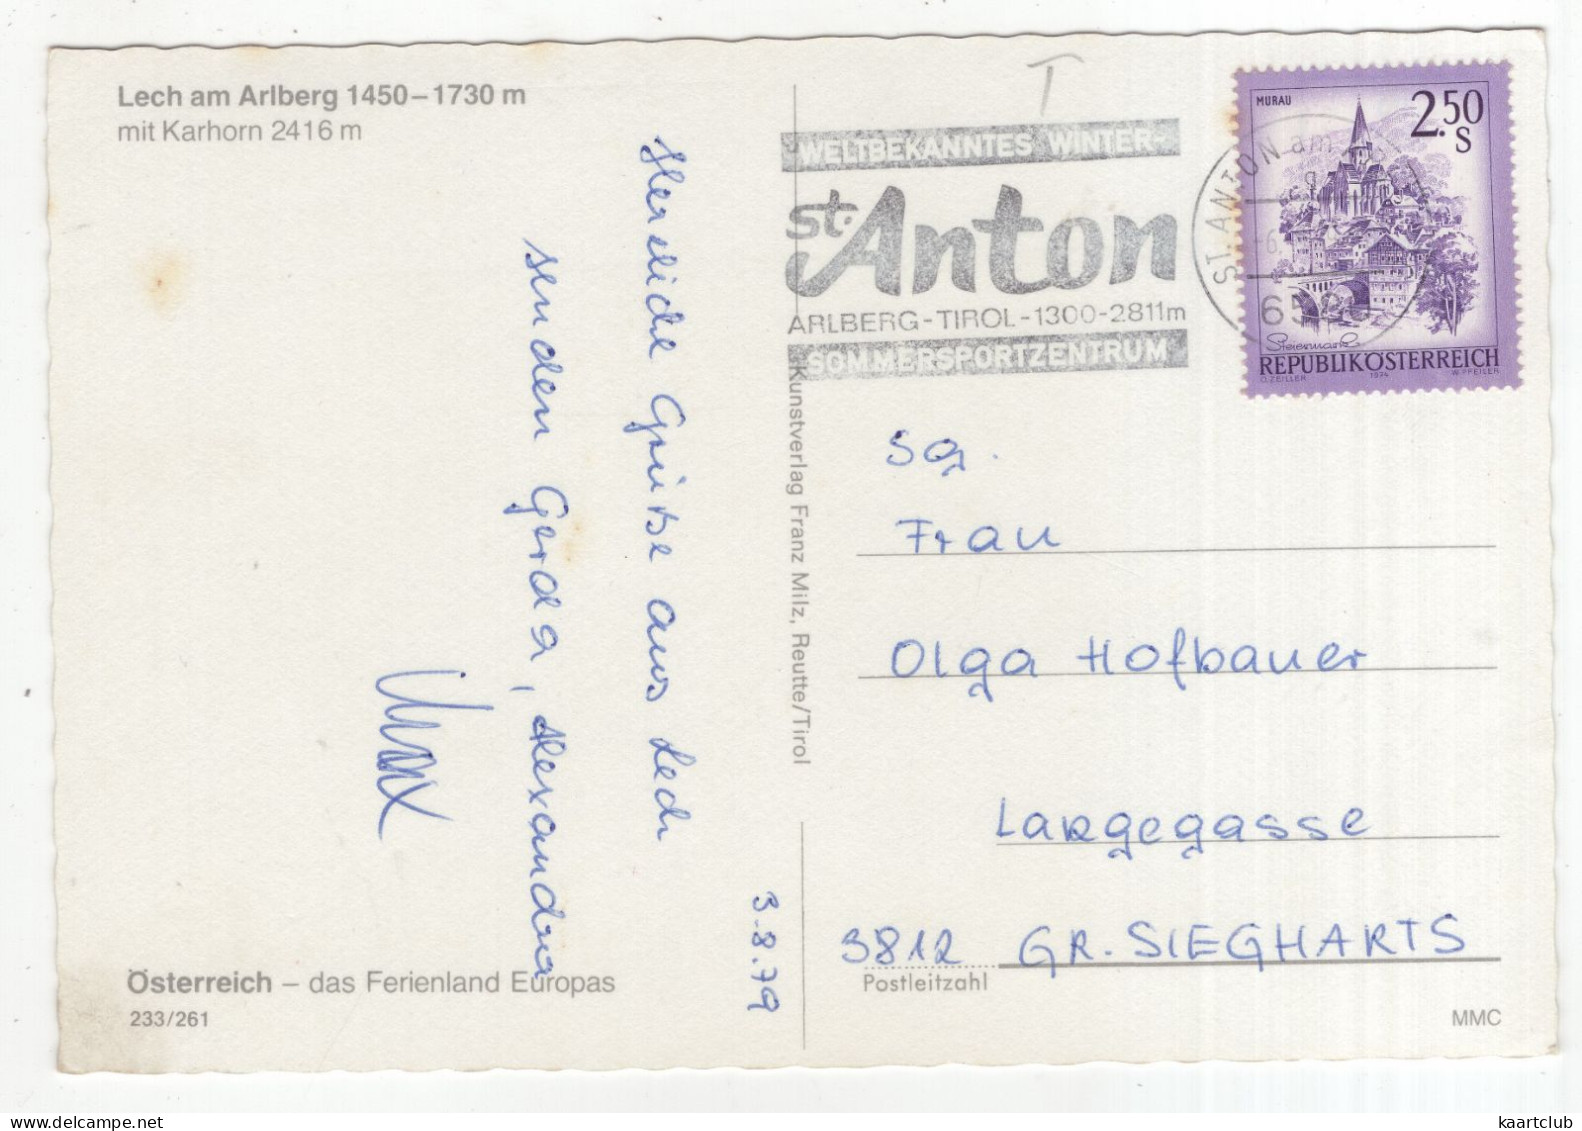 Lech am Arlberg 1450–1730 m
mit Karhorn 2416 m
Herzliche Grüße aus Lech
senden Gerda, Alexandra
Max
3.8.79
Österreich – das Ferienland Europas
233/261
Kunstverlag Franz Milz, Reutte/Tirol
T
WELTBEKANNTES WINTER-
st. Anton
ARLBERG-TIROL-1300-2811m
SOMMERSPORTZENTRUM
ST. ANTON am
MURAU
2.50
S
Steiermark
REPUBLIK ÖSTERREICH
O. ZEILLER 1974 W. PFEILER
Sg.
Frau
Olga Hofbauer
Langegasse
3812 GR. SIEGHARTS
Postleitzahl
MMC
kaartclub